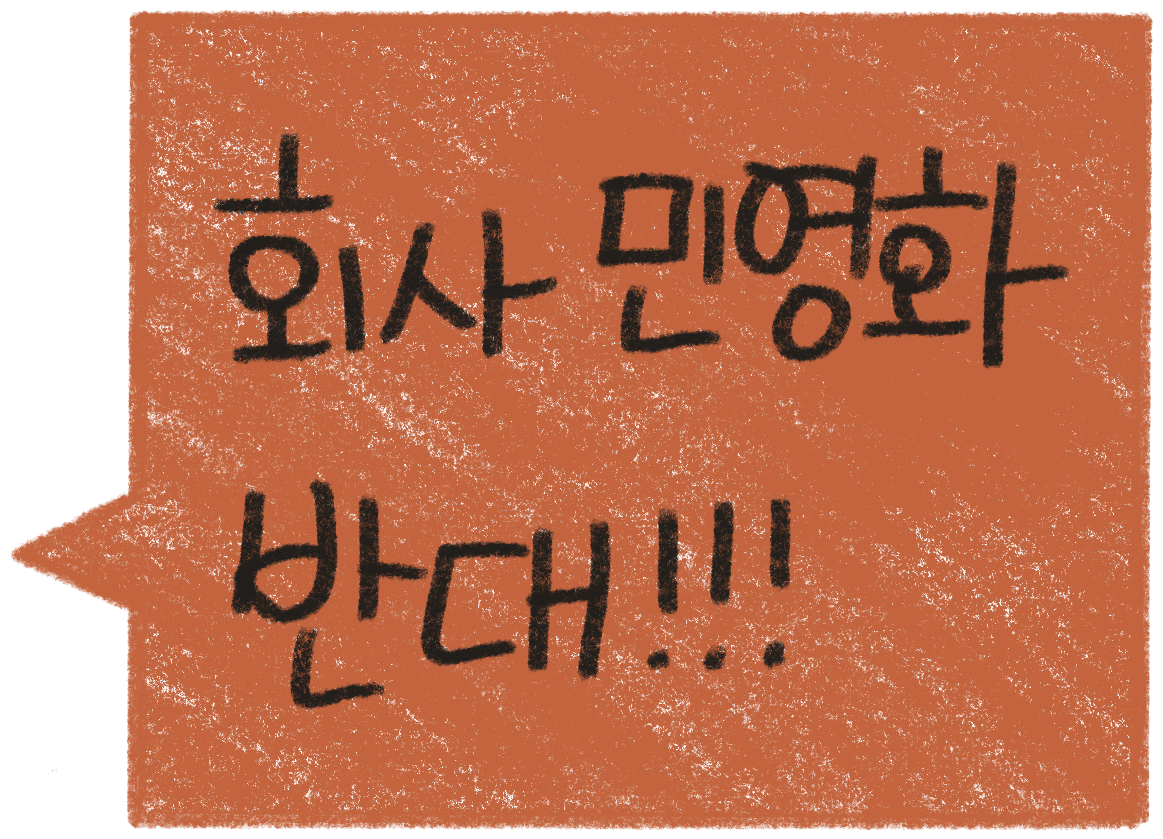 회사 민영화
반대!!!